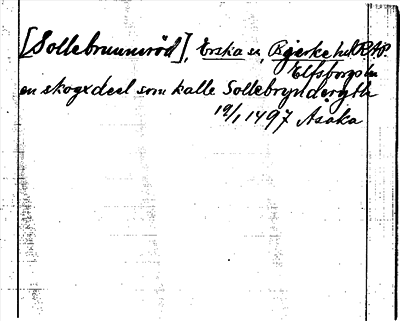 [Sollebrunnsröd], Erska sn, Bjerke hd RAP.
Elfsborgs län
en skogxdeel som kalle Sollebryndærydh
19/1 1497 Asaka